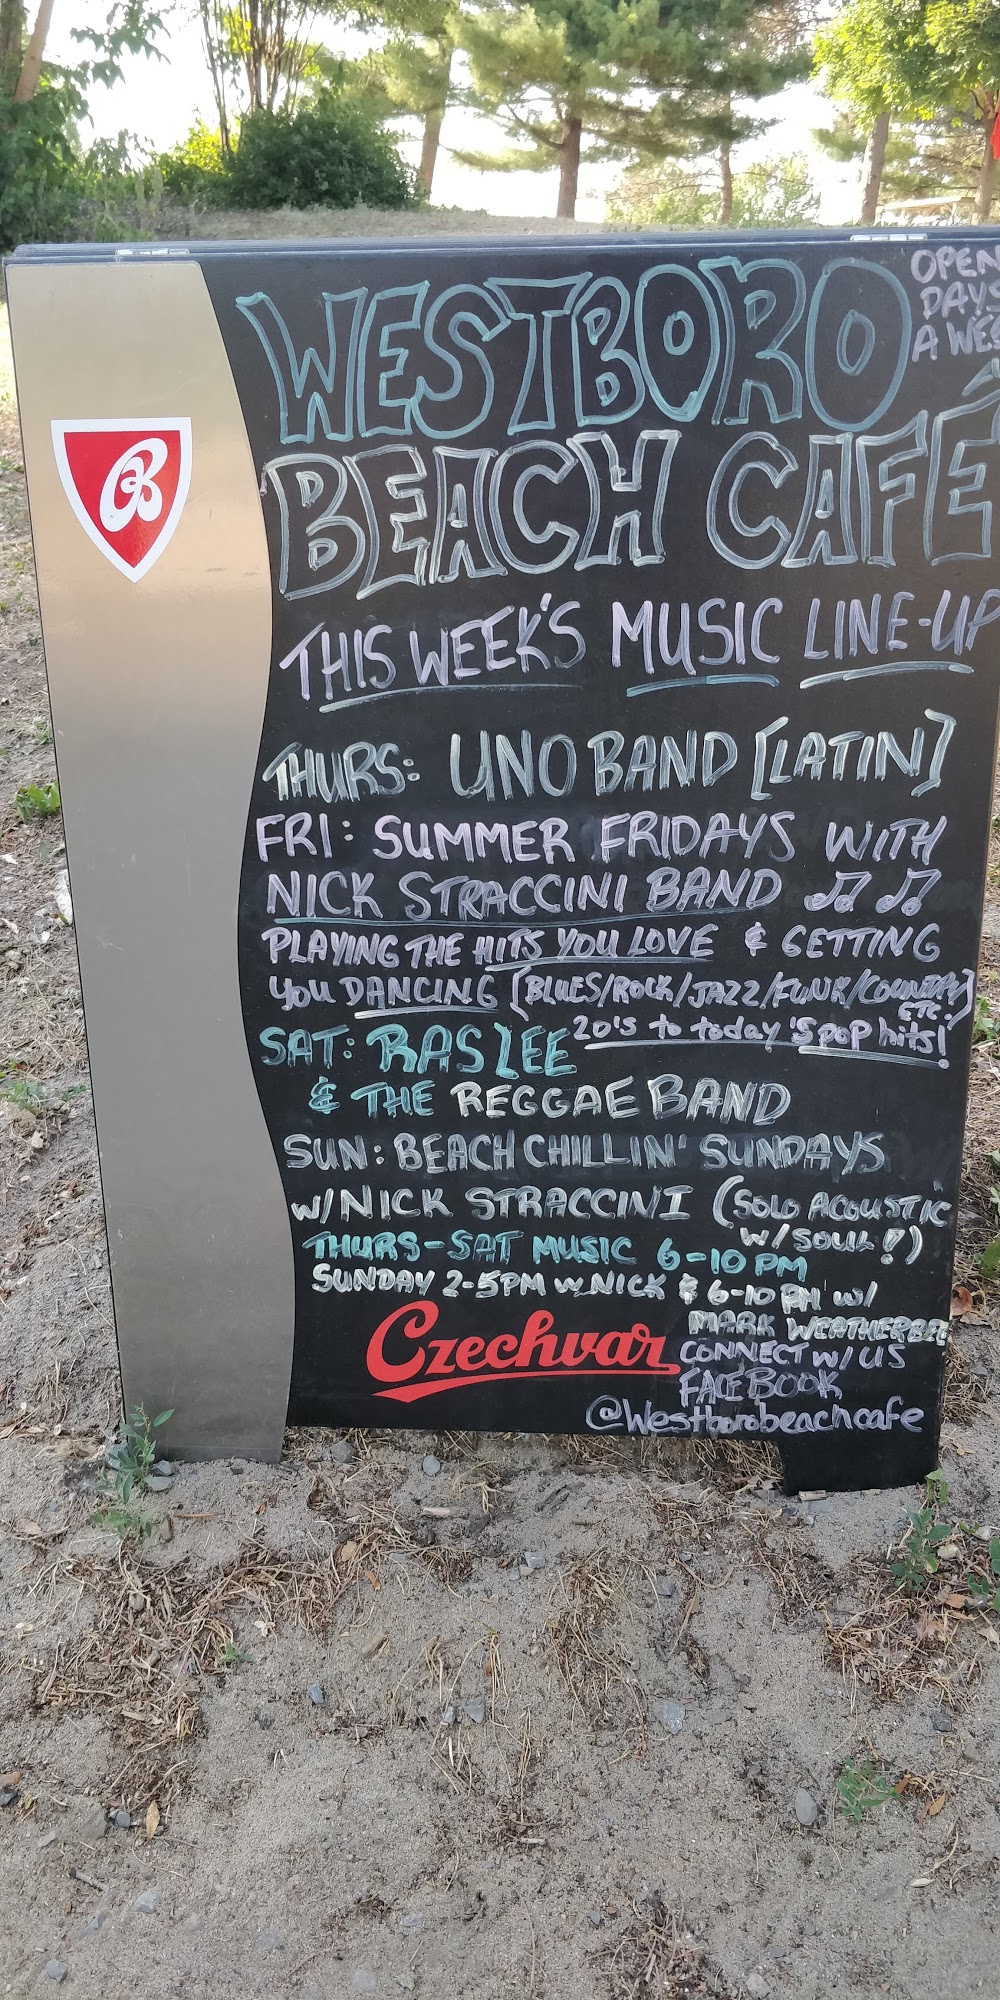 WESTBORO
OPEN
DAYS
A WEE
BEACH CAFÉ
B
THIS WEEK'S MUSIC LINE-UP
THURS: UNO BAND [LATIN]
FRI: SUMMER FRIDAYS WITH
NICK STRACCINI BAND
PLAYING THE HITS YOU LOVE & GETTING
YOU DANCING [BLUES/ROCK/JAZZ/FUNK/COUNTRY]
ETC.
20's to today's pop hits!
SAT: RAS LEE
& THE REGGAE BAND
SUN: BEACH CHILLIN' SUNDAYS
W/NICK STRACCINI (SOLO ACOUSTIC
W/SOUL!)
THURS-SAT MUSIC 6-10PM
SUNDAY 2-5PM W NICK & 6-10PM W/
MARK WEATHERBEE
Czechvar
CONNECT W/ US
FACEBOOK
@Westborobeachcafe